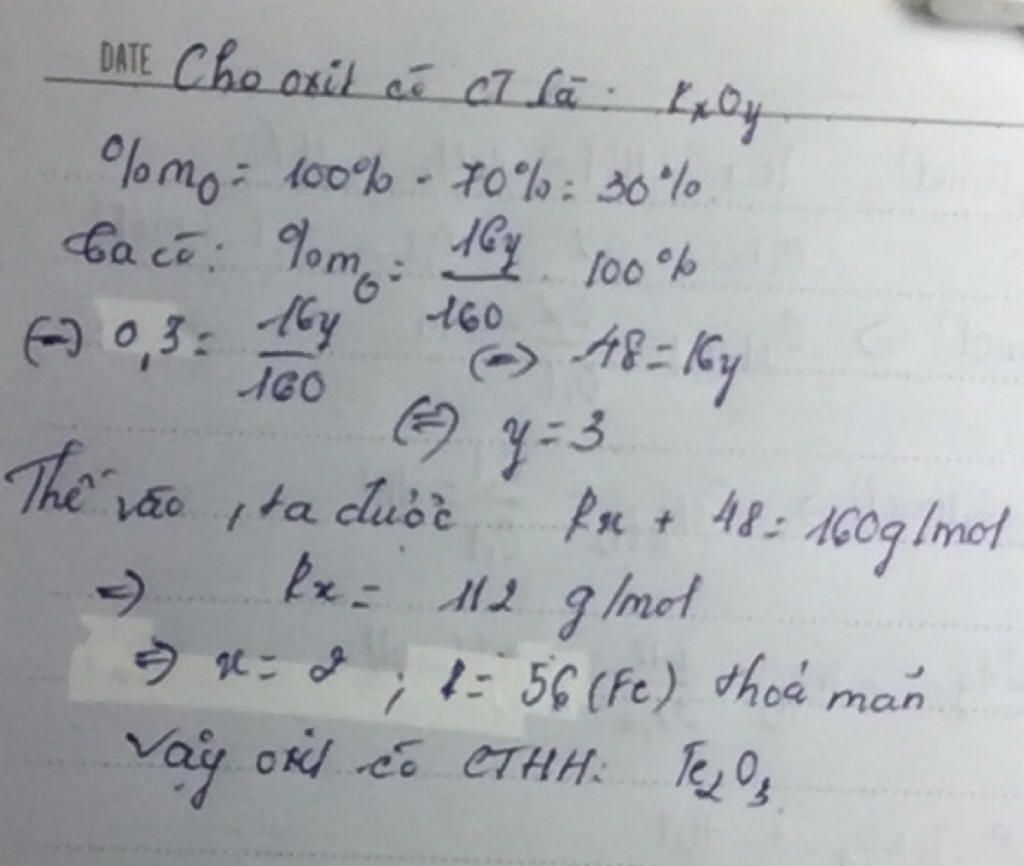 DATE Cho oxit có CT là: RxOy
%mO = 100% - 70% = 30%
Ta có: %mO = 16y/160 . 100%
(=) 0,3 = 16y/160 (=) 48 = 16y
(=) y = 3
Thế vào, ta được Rx + 48 = 160g/mol
=) Rx = 112 g/mol
=) x = 2 ; R = 56 (Fe) thoả mãn
Vậy oxit có CTHH: Fe2O3